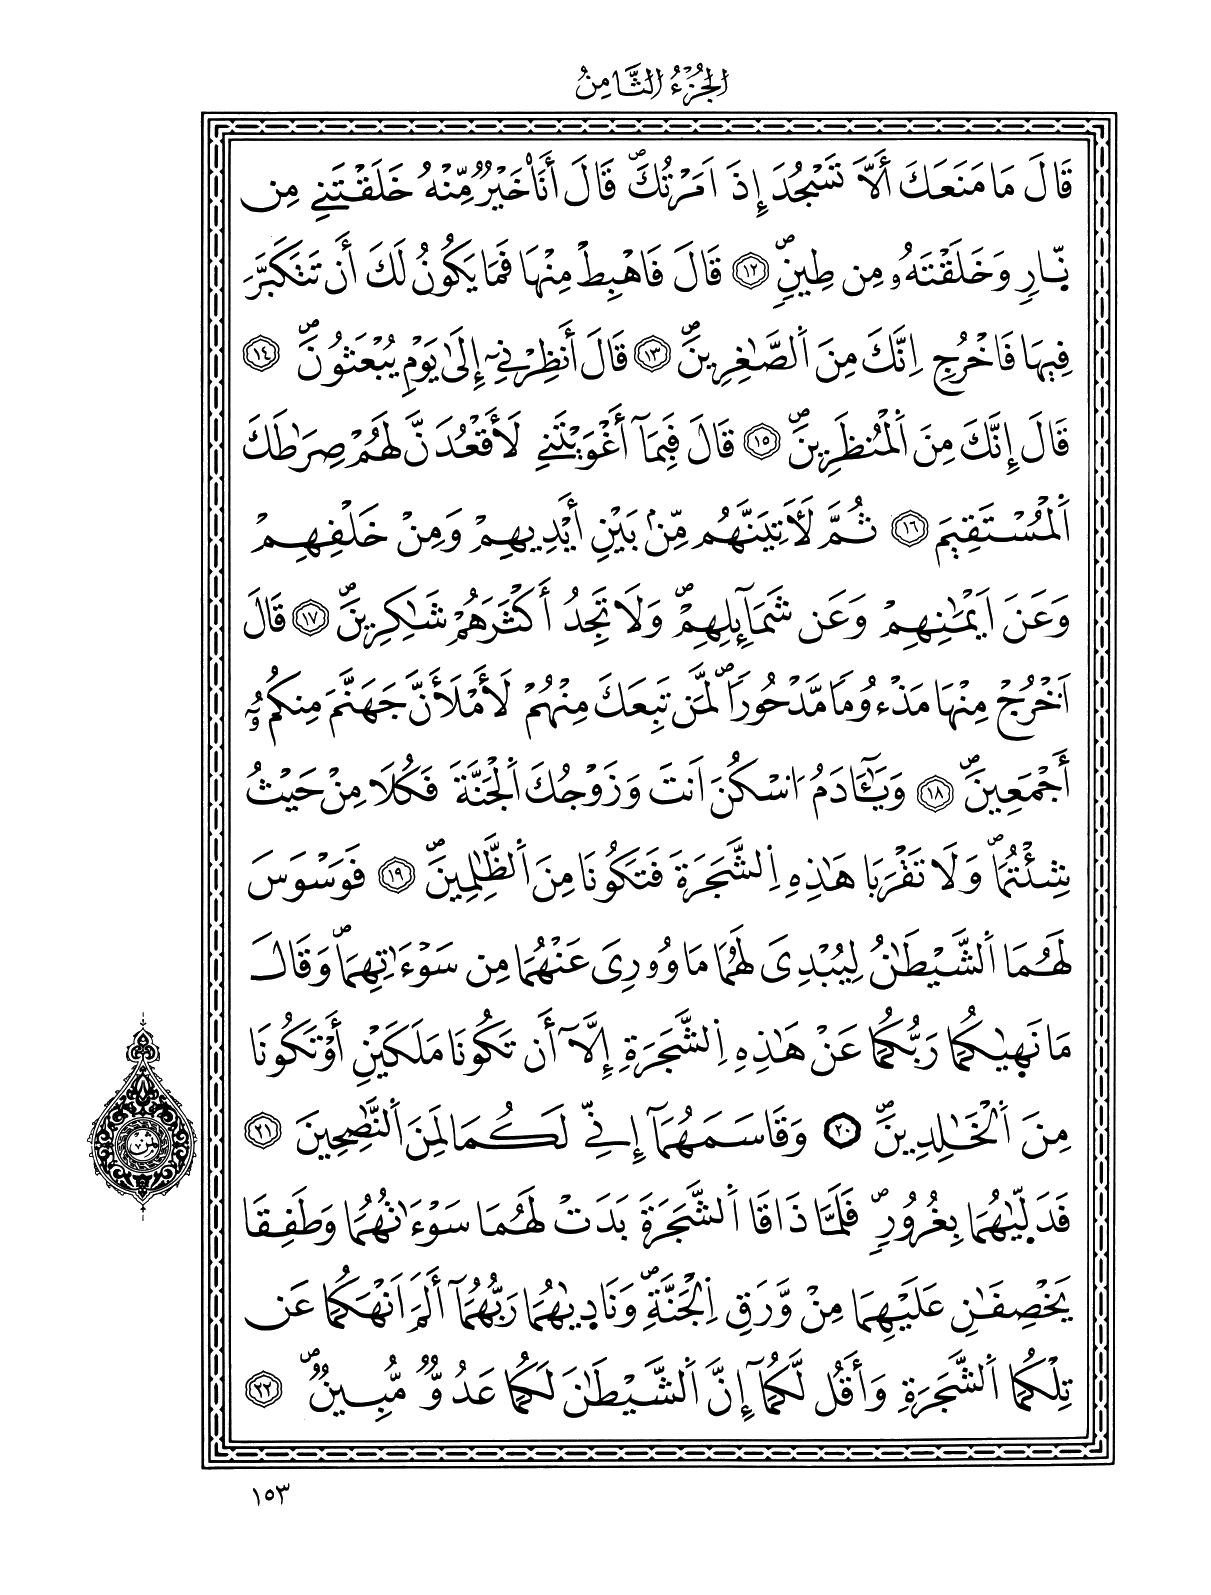 الجُزْءُ الثَّامِنُ
قَالَ مَا مَنَعَكَ أَلَّا تَسْجُدَ إِذَ اَمَرْتُكَۖ قَالَ أَنَا۠ خَيْرٌ مِّنْهُ خَلَقْتَنِے مِن
نّ۪ارٖ وَخَلَقْتَهُۥ مِن طِينٖۖ ١٢ قَالَ فَاهْبِطْ مِنْهَا فَمَا يَكُونُ لَكَ أَن تَتَكَبَّرَ
فِيهَا فَاخْرُجِ اِنَّكَ مِنَ اَ۬لصَّٰغِرِينَۖ ١٣ قَالَ أَنظِرْنِےٓ إِلَىٰ يَوْمِ يُبْعَثُونَۖ ١٤
قَالَ إِنَّكَ مِنَ اَ۬لْمُنظَرِينَۖ ١٥ قَالَ فَبِمَآ أَغْوَيْتَنِے لَأَقْعُدَنَّ لَهُمْ صِرَٰطَكَ
اَ۬لْمُسْتَقِيمَ ١٦ ثُمَّ لَأٓتِيَنَّهُم مِّنۢ بَيْنِ أَيْدِيهِمْ وَمِنْ خَلْفِهِمْ
وَعَنَ اَيْمَٰنِهِمْ وَعَن شَمَآئِلِهِمْۖ وَلَا تَجِدُ أَكْثَرَهُمْ شَٰكِرِينَۖ ١٧ قَالَ
اَ۟خْرُجْ مِنْهَا مَذْءُوماٗ مَّدْحُوراٗۖ لَّمَن تَبِعَكَ مِنْهُمْ لَأَمْلَأَنَّ جَهَنَّمَ مِنكُمُۥٓ
أَجْمَعِينَۖ ١٨ وَيَٰٓـَٔادَمُ اُ۟سْكُنَ اَنتَ وَزَوْجُكَ اَ۬لْجَنَّةَ فَكُلَا مِنْ حَيْثُ
شِئْتُمَاۖ وَلَا تَقْرَبَا هَٰذِهِ اِ۬لشَّجَرَةَ فَتَكُونَا مِنَ اَ۬لظَّٰلِمِينَۖ ١٩ فَوَسْوَسَ
لَهُمَا اَ۬لشَّيْطَٰنُ لِيُبْدِيَ لَهُمَا مَا وُۥرِيَ عَنْهُمَا مِن سَوْءَٰتِهِمَاۖ وَقَالَ
مَا نَه۪يٰكُمَا رَبُّكُمَا عَنْ هَٰذِهِ اِ۬لشَّجَرَةِ إِلَّآ أَن تَكُونَا مَلَكَيْنِ أَوْ تَكُونَا
مِنَ اَ۬لْخَٰلِدِينَۖ ٢٠ وَقَاسَمَهُمَآ إِنِّے لَكُمَا لَمِنَ اَ۬لنَّٰصِحِينَ ٢١
فَدَلّ۪يٰهُمَا بِغُرُورٖۖ فَلَمَّا ذَاقَا اَ۬لشَّجَرَةَ بَدَتْ لَهُمَا سَوْءَٰتُهُمَا وَطَفِقَا
يَخْصِفَٰنِ عَلَيْهِمَا مِنْ وَّرَقِ اِ۬لْجَنَّةِۖ وَنَاد۪يٰهُمَا رَبُّهُمَآ أَلَمَ اَنْهَكُمَا عَن
تِلْكُمَا اَ۬لشَّجَرَةِ وَأَقُل لَّكُمَآ إِنَّ اَ۬لشَّيْطَٰنَ لَكُمَا عَدُوّٞ مُّبِينٞۖ ٢٢
ثمن
١٥٣